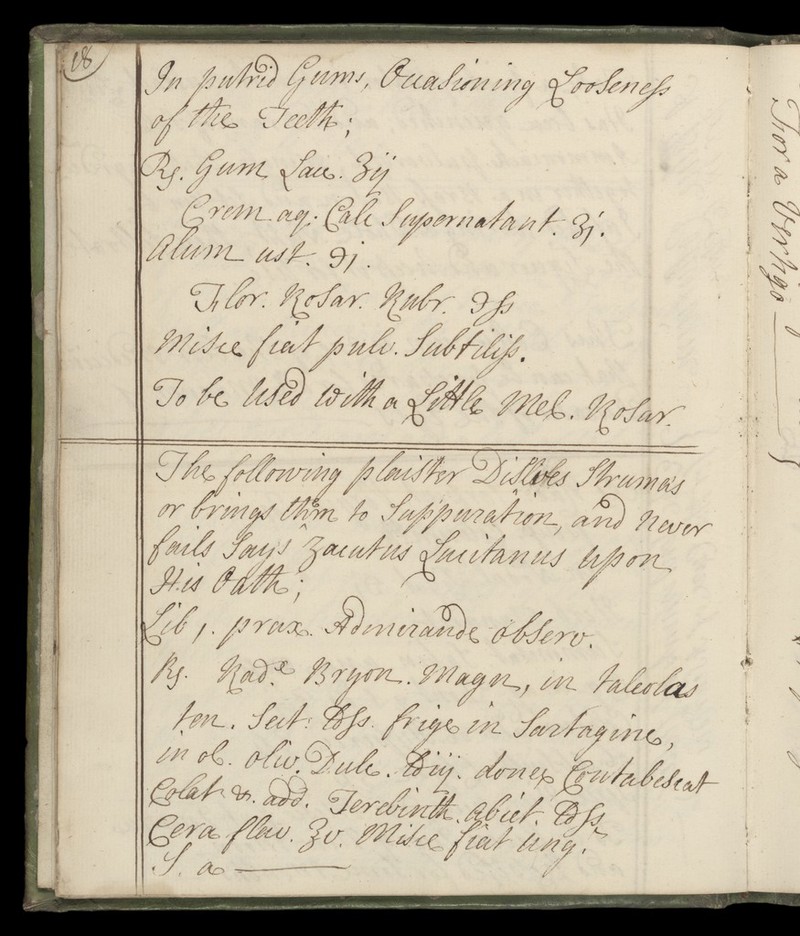 18
In putrid Gums, Occasioning Looseness
of the Teeth;
℞. Gum Lacc. ʒij
Crem. aq. Calc Supernatant. ʒj.
Alum ust. ℈j.
Flor. Rosar. Rubr. ℈ss
Misce fiat pulv. Subtiliss.
To be Used with a Little Mel. Rosar.
The following plaister Disolves Strumas
or brings them to Suppuration, and never
fails Says Zacutus Lucitanus upon
His Oath;
Lib 1. prax. Admirande observ.
℞. Rad. Bryon. Magn, in taleolas
ten. Sect. ℔ss. frige in Sartagine,
in ol. oliv. Dulc. ℔iij. donec Contabescat
Colat &. add. Terebinth. abiet. ℔ss
Cera flav. ʒv. Misce fiat ung.
S. a
For a Vertigo